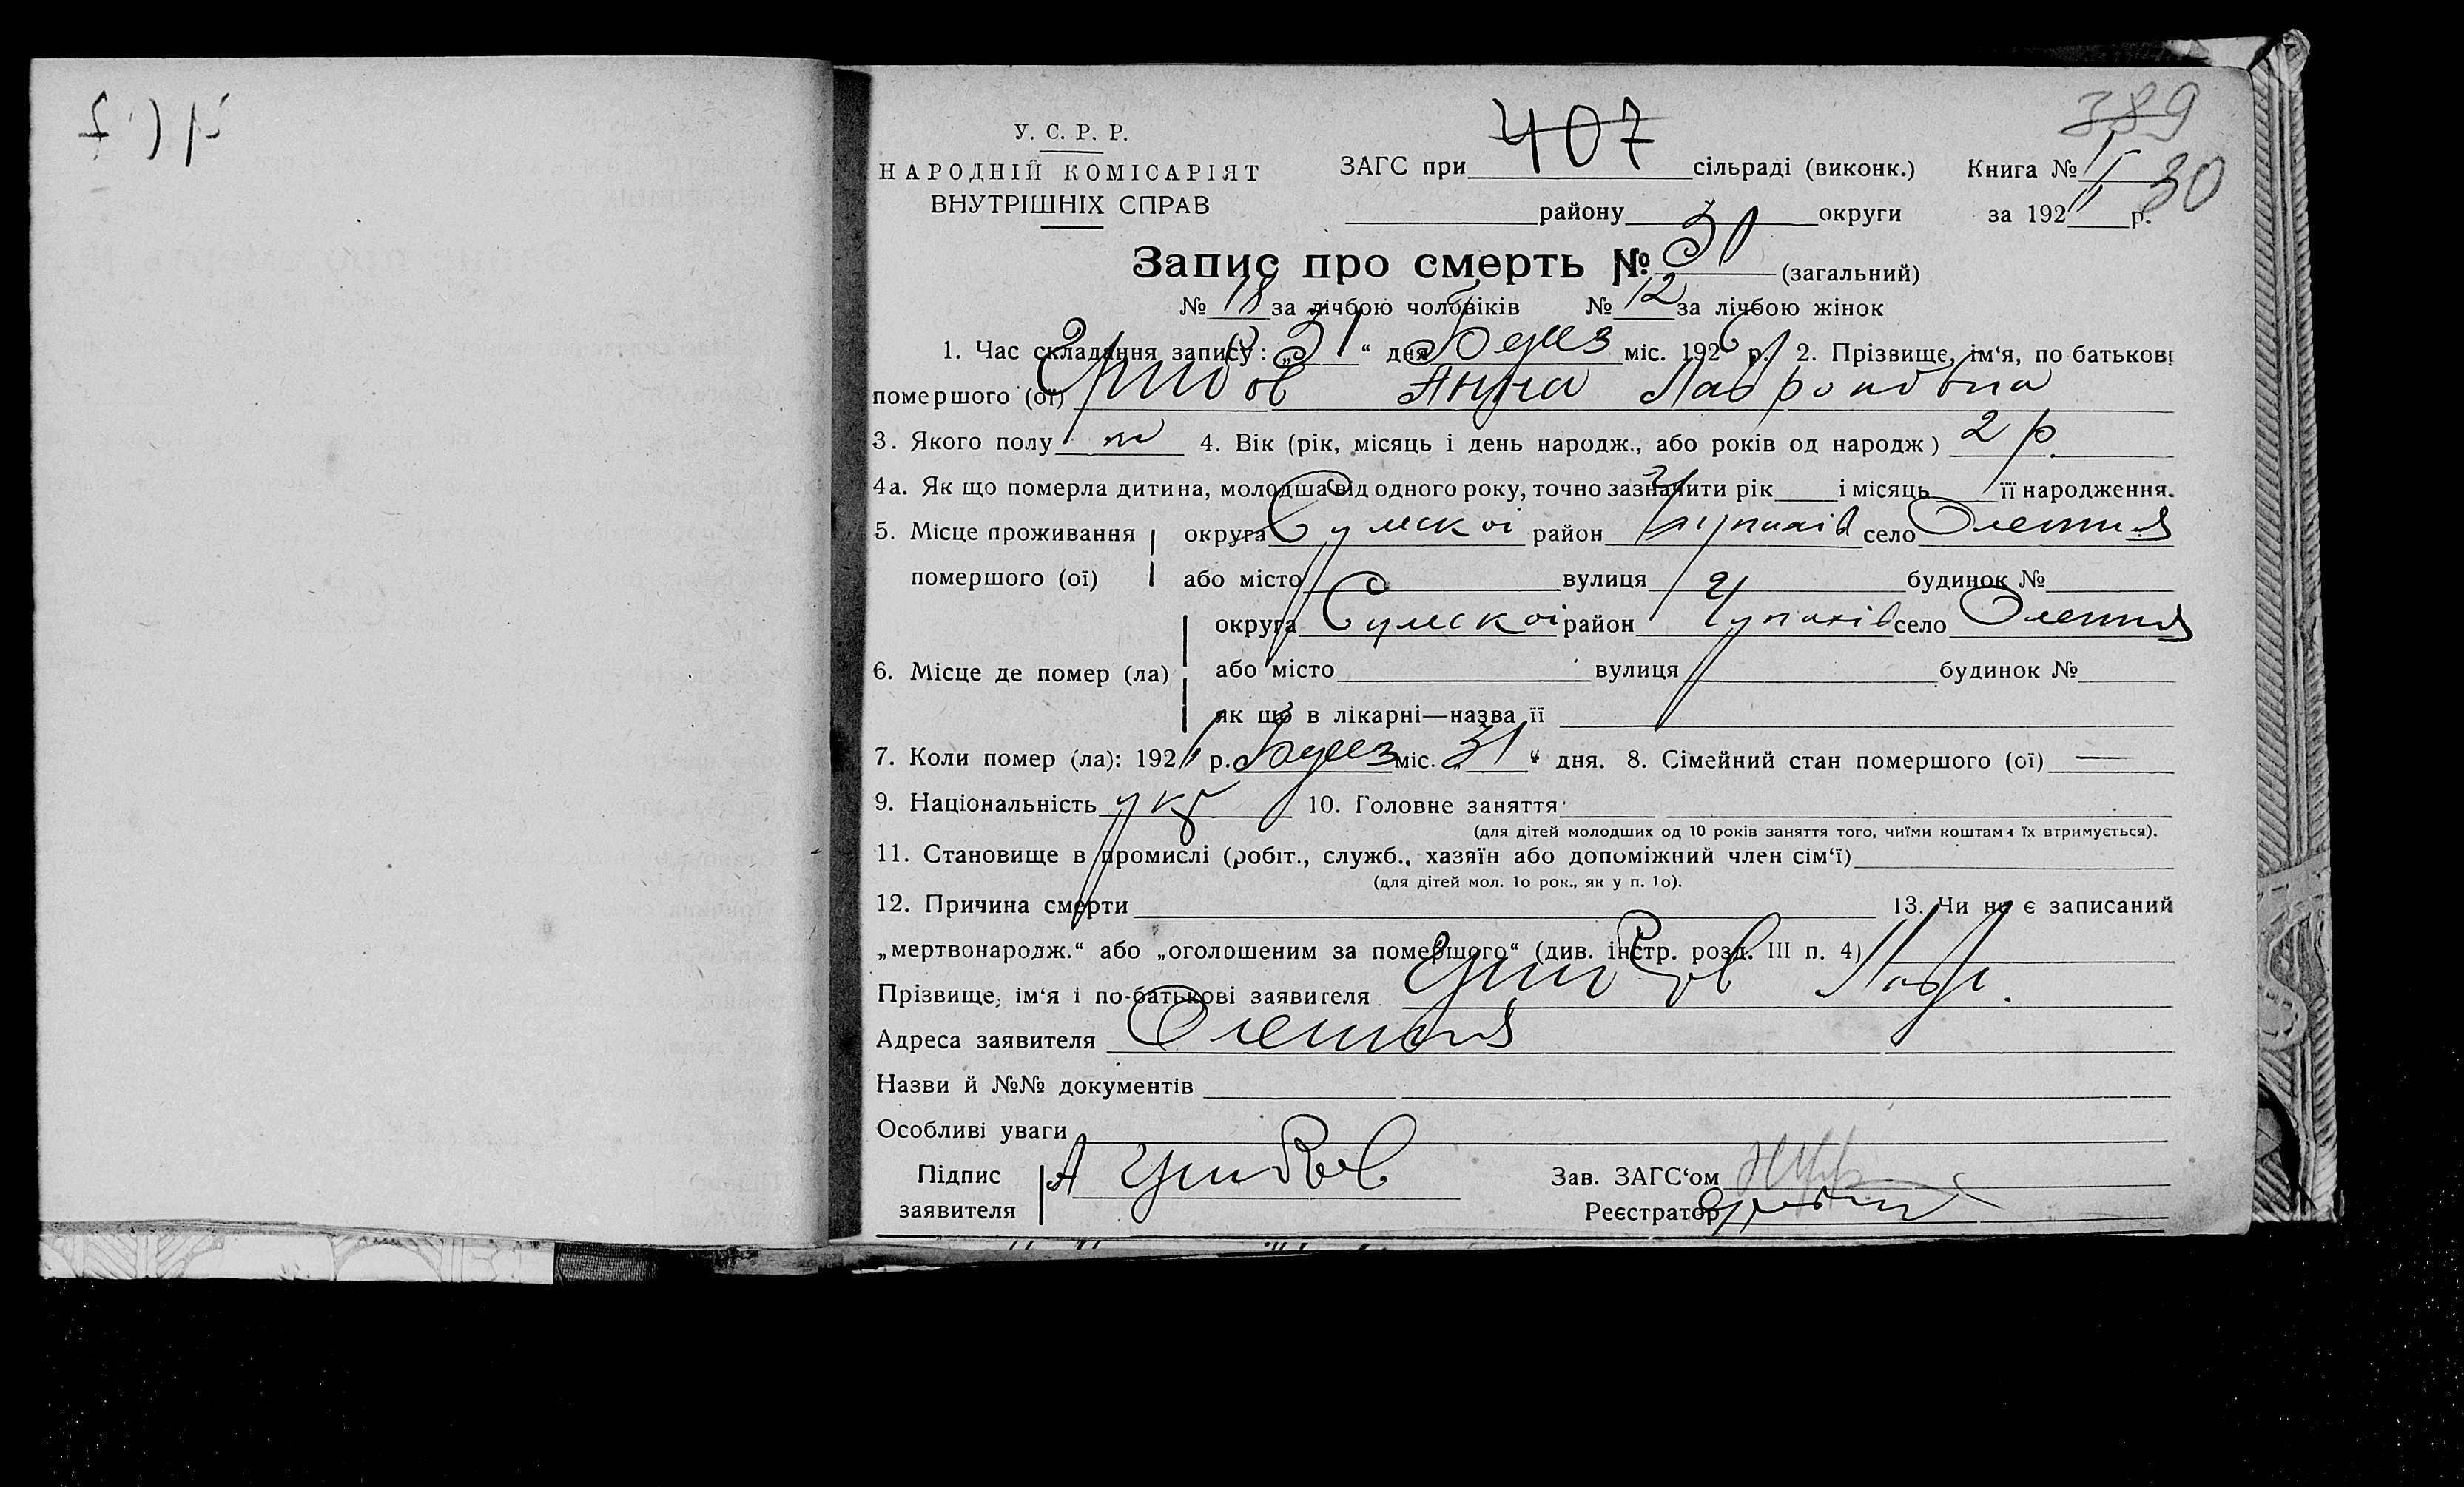 389
У. С. Р. Р.
НАРОДНІЙ КОМІСАРІЯТ
ВНУТРІШНІХ СПРАВ
ЗАГС при 407 сільраді (виконк.) Книга №
30
району округи за 192 р.
Запис про смерть № 30 (загальний)
№ 18 за лічбою чоловіків № 12 за лічбою жінок
1. Час складання запису: „31“ дня Берез міс. 1926 р. 2. Прізвище, ім‘я, по батькові
помершого (ої) Анна Лаврововна
3. Якого полу ж 4. Вік (рік, місяць і день народж., або років од народж) 2 р.
4а. Як що померла дитина, молодша від одного року, точно зазначити рік і місяць її народження.
5. Місце проживання округа Сумскої район Чупахів село Олешня
помершого (ої) або місто вулиця будинок №
округа Сумскої район Чупахів село Олешня
6. Місце де помер (ла) або місто вулиця будинок №
як що в лікарні—назва її
7. Коли помер (ла): 192 р. Берез міс. „31“ дня. 8. Сімейний стан помершого (ої) —
9. Національність укр 10. Головне заняття
(для дітей молодших од 10 років заняття того, чиїми коштами їх втримується).
11. Становище в промислі (робіт., служб., хазяїн або допоміжний член сім‘ї)
(для дітей мол. 1о рок., як у п. 1о).
12. Причина смерти 13. Чи не є записаний
„мертвонародж.“ або „оголошеним за помершого“ (див. інстр. розд. III п. 4)
Прізвище, ім‘я і по-батькові заявителя Лавр.
Адреса заявителя Олешня
Назви й №№ документів
Особливі уваги
Підпис
заявителя
Зав. ЗАГС‘ом
Реєстратор